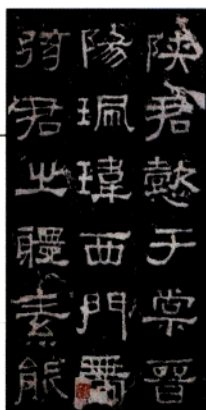 陝君懿于棠晉
陽珮瑋西門帶
弦君之體素能